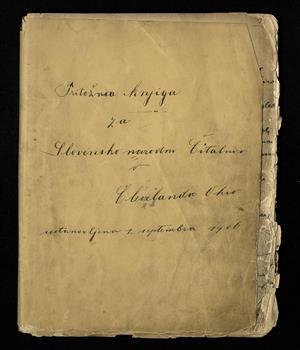 Pritožna knjiga
za
Slovensko narodno Čitalnico
v
Clevelandu Ohio
ustanovljeno 2. septembra 1906